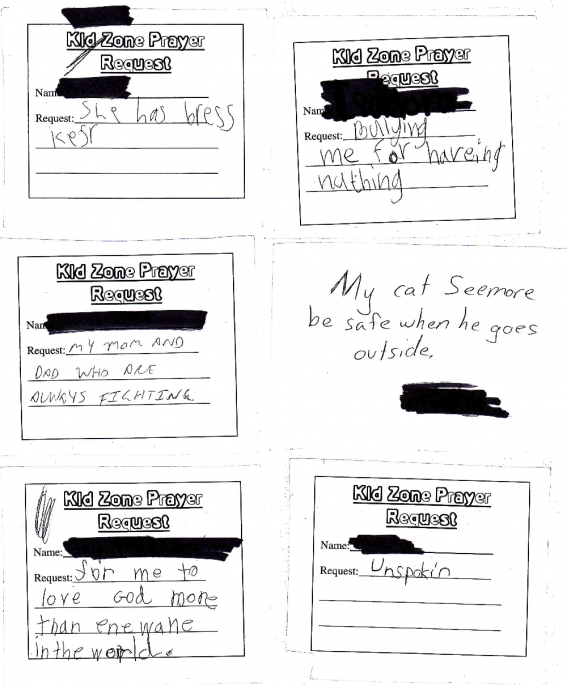 Kid Zone Prayer
Request
Name
Request: She has bress
kesr
Kid Zone Prayer
Request
Nam
Request: bullying
me for haveing
nathing
Kid Zone Prayer
Request
Nam
Request: MY MOM AND
DAD WHO ARE
ALWAYS FIGHTING.
My cat Seemore
be safe when he goes
outside.
Kid Zone Prayer
Request
Name:
Request: for me to
love God more
than ene wane
in the world.
Kid Zone Prayer
Request
Name:
Request: Unspokin